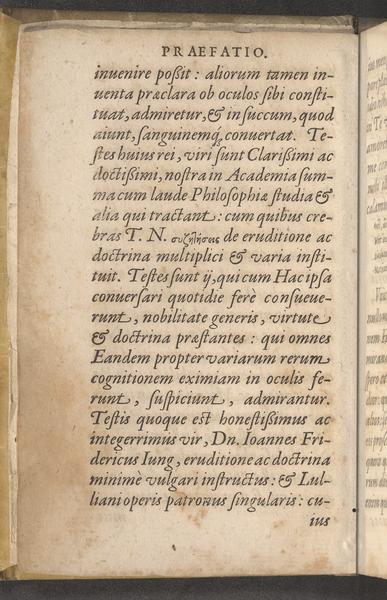 PRAEFATIO.
inuenire poßit: aliorum tamen in-
uenta præclara ob oculos sibi consti-
tuat, admiretur, & in succum, quod
aiunt, sanguinemq́; conuertat. Te-
stes huius rei, viri sunt Clarißimi ac
doctißimi, nostra in Academia sum-
ma cum laude Philosophiæ studia &
alia qui tractant: cum quibus cre-
bras T. N. συζητήσεις de eruditione ac
doctrina multiplici & varia insti-
tuit. Testes sunt ij, qui cum Hac ipsa
conuersari quotidie ferè consueue-
runt, nobilitate generis, virtute
& doctrina præstantes: qui omnes
Eandem propter variarum rerum
cognitionem eximiam in oculis fe-
runt, suspiciunt, admirantur.
Testis quoque est honestißimus ac
integerrimus vir, Dn. Ioannes Fri-
dericus Iung, eruditione ac doctrina
minimè vulgari instructus: & Lul-
liani operis patronus singularis: cu-
ius